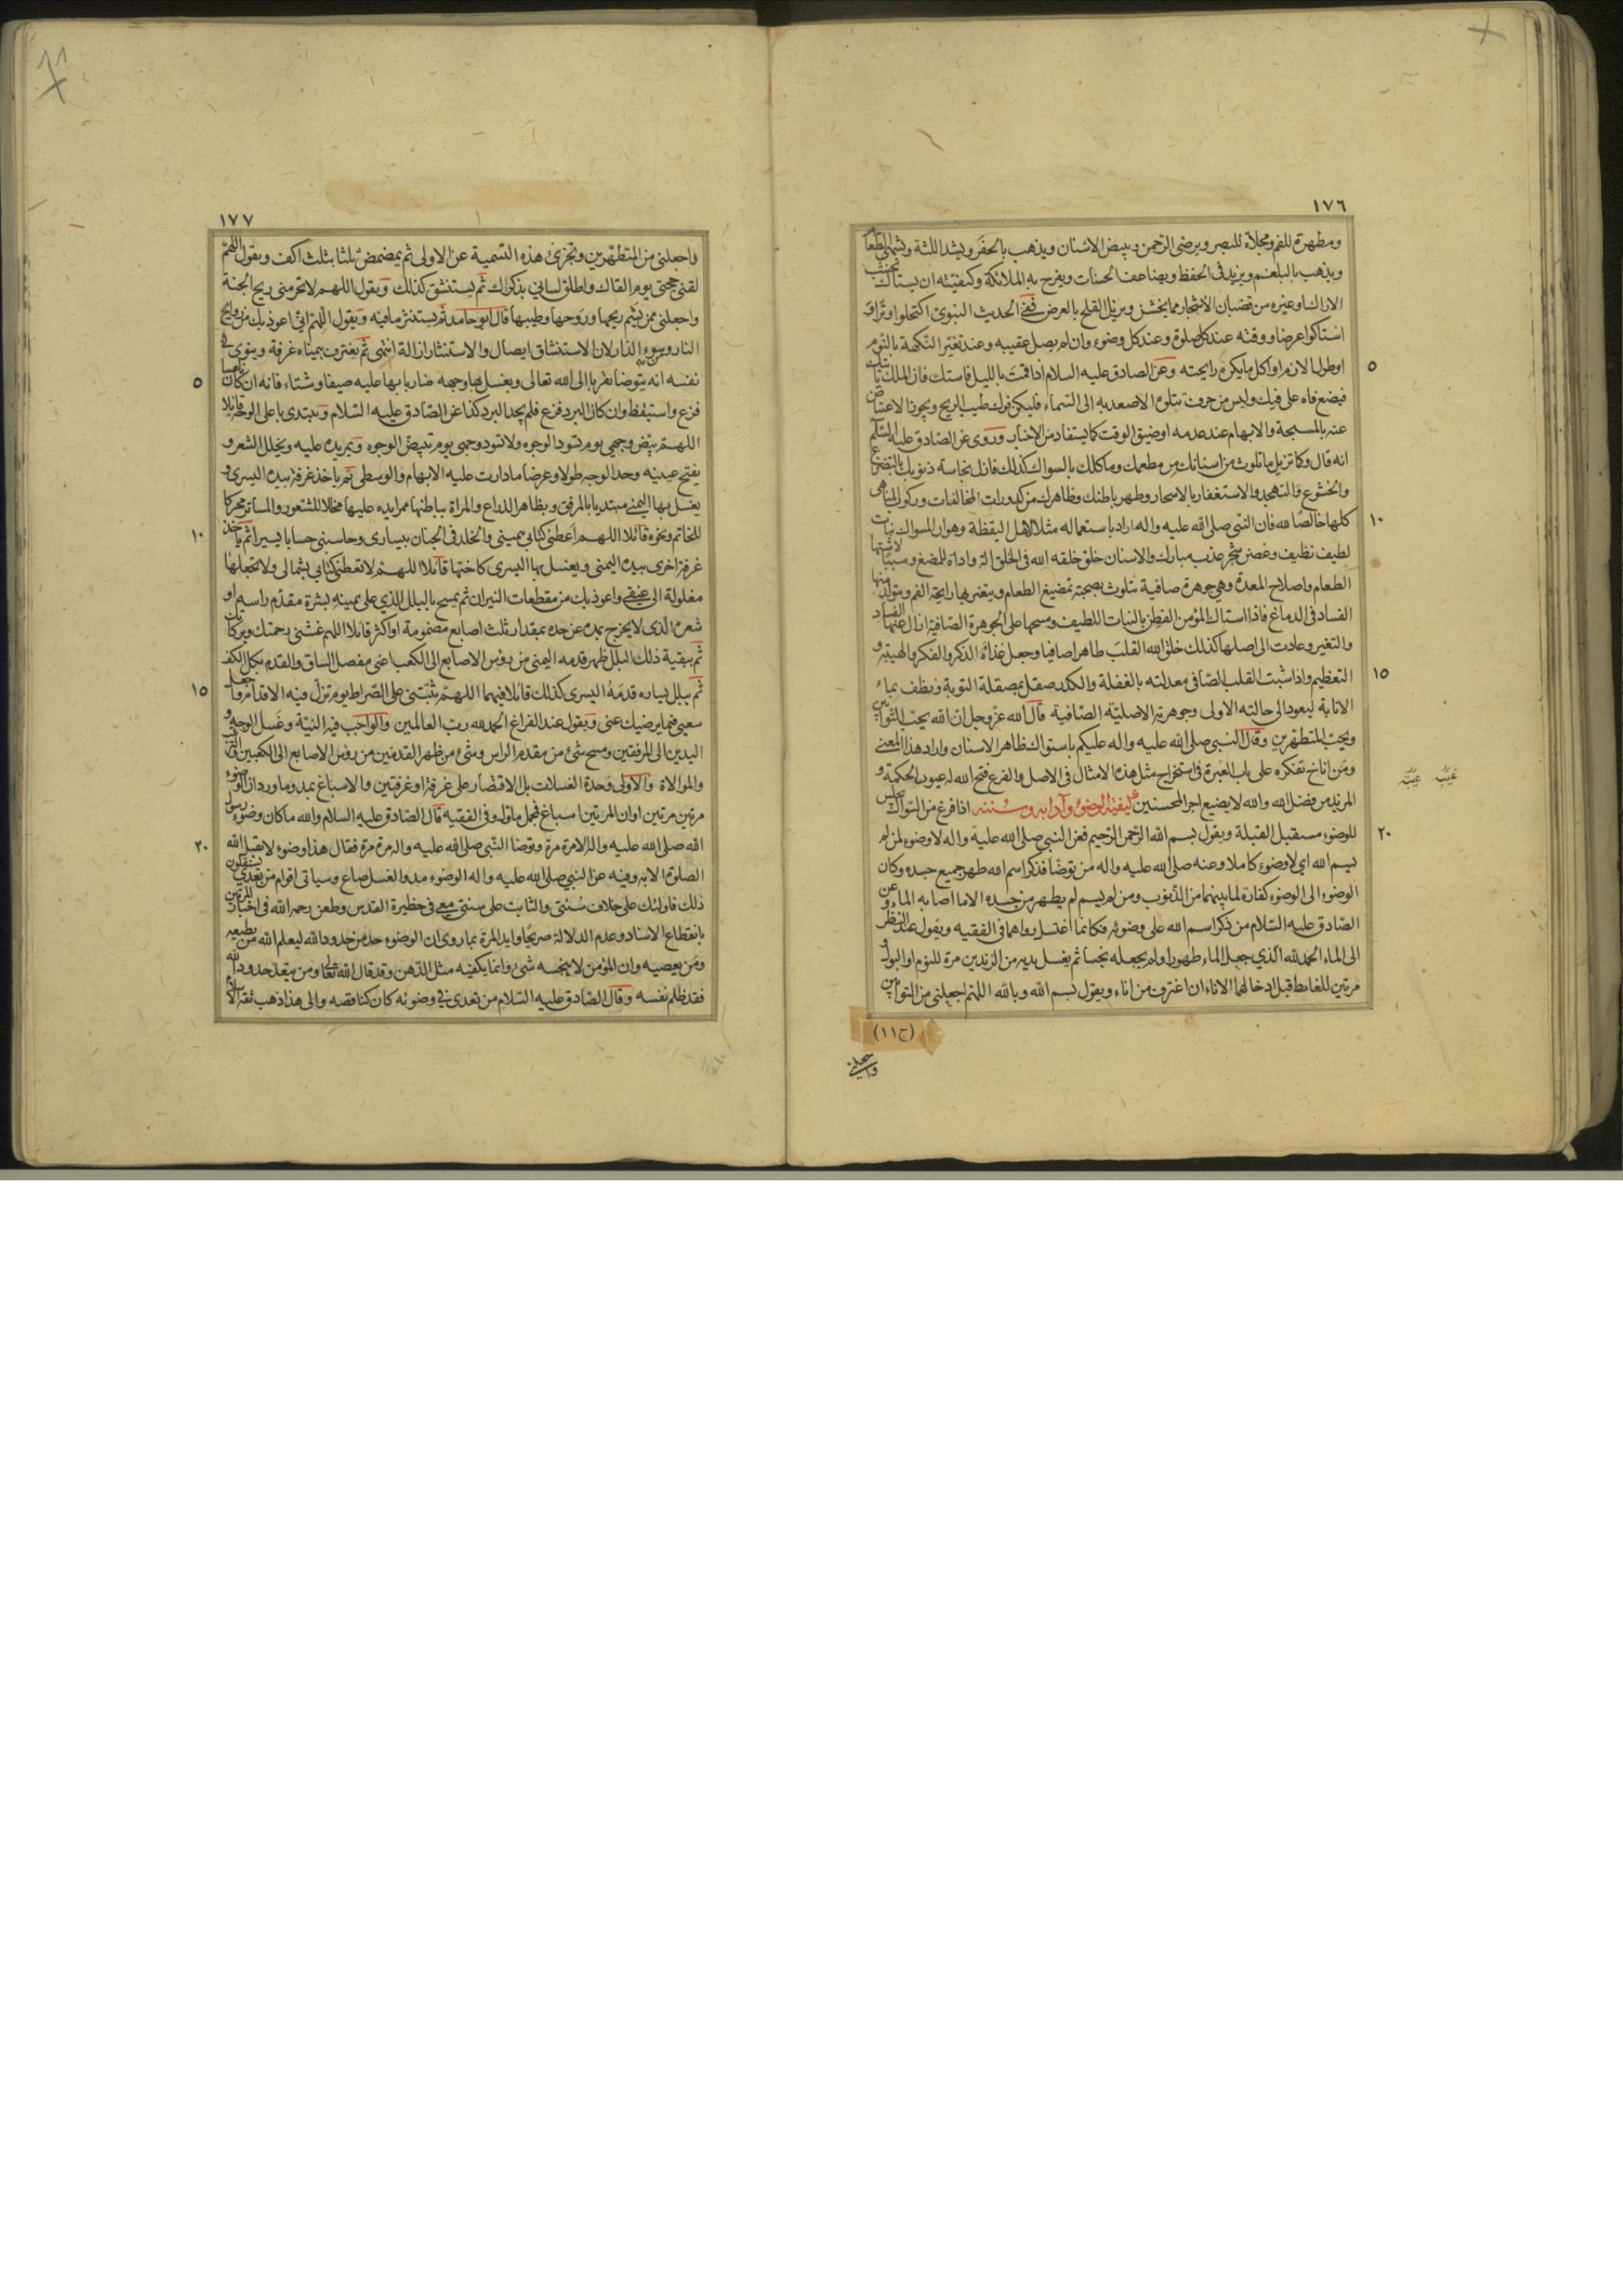 ١٧٦
ومطهرة للفم ومجلاة للبصر ويرضى الرحمن ويبيض الاسنان ويذهب بالحفر ويشد اللثة ويشهى الطعام
ويذهب بالبلغم ويزيد فى الحفظ ويضاعف الحسنات ويفرح به الملائكة وكيفيته ان يستاك بخشب
الاراك او غيره من قضبان الاشجار مما يخشن ويزيل القلح بالعرض ففي الحديث النبوى اكتحلوا وترا و
استاكوا عرضا ووقته عند كل صلوة وعند كل وضوء وان لم يصل عقيبه وعند تغير النكهة بالنوم
٥
او طول الازم او اكل ما يكره رايحته وعن الصادق عليه السلام اذا قمت بالليل فاستك فان الملك ياتيك
فيضع فاه على فيك وليس من حرف تتلوه الا صعد به الى السماء فليكن فوك طيب الريح ويجوز الاعتياض
عنه بالمسبحة والابهام عند عدمه او ضيق الوقت كما يستفاد من الاخبار وروى عن الصادق عليه السلم
انه قال وكما تزيل ما تلوث من اسنانك من مطعمك وماكلك بالسواك كذلك فازل نجاسة ذنوبك بالتضرع
والخشوع والتهجد والاستغفار بالاسحار وطهر باطنك وظاهرك من كدورات المخالفات وركوب المناهى
١٠
كلها خالصا لله فان النبى صلى الله عليه واله اراد باستعماله مثلا لاهل اليقظة وهو ان السواك نبات
لطيف نظيف وغصن شجر عذب مبارك والاسنان خلق خلقه الله فى الخلق الة واداة للمضغ وسببا لاشتهاء
الطعام واصلاح المعدة وهى جوهرة صافية تتلوث بصحبة تمضيغ الطعام ويتغير بها رايحة الفم ويتولد منها
الفساد فى الدماغ فاذا استاك المؤمن الفطن بالنبات اللطيف ومسحها على الجوهرة الصافية ازال عنها الفساد
والتغير وعادت الى اصلها كذلك خلق الله القلب طاهرا صافيا وجعل غذاءه الذكر والفكر والهيبة و
١٥
التعظيم واذا شيب القلب الصافى معدلته بالغفلة والكدر صقل بمصقلة التوبة ونظف بماء
الانابة ليعود الى حالته الاولى وجوهرته الاصلية الصافية قال الله عز وجل ان الله يحب التوابين
ويحب المتطهرين وقال النبى صلى الله عليه واله عليكم باستواك ظاهر الاسنان واراد هذا المعنى
ومن اناخ تفكره على باب العبرة فى استخراج مثل هذه الامثال فى الاصل والفرع فتح الله له عيون الحكمة و
المزيد من فضل الله والله لا يضيع اجر المحسنين كيفية الوضوء وآدابه وسننه اذا فرغ من السواك جلس
٢٠
للوضوء مستقبل القبلة ويقول بسم الله الرحمن الرحيم فعن النبى صلى الله عليه واله لا وضوء لمن لم
يسم الله اى لا وضوء كاملا وعنه صلى الله عليه واله من توضا فذكر اسم الله طهر جميع جسده وكان
الوضوء الى الوضوء كفارة لما بينهما من الذنوب ومن لم يسم لم يطهر من جسده الا ما اصابه الماء وعن
الصادق عليه السلام من ذكر اسم الله على وضوئه فكانما اغتسل رواهما فى الفقيه ويقول عند النظر
الى الماء الحمد لله الذي جعل الماء طهورا ولم يجعله نجسا ثم يغسل يديه من الزندين مرة للنوم او البول و
مرتين للغائط قبل ادخالهما الاناء ان اغترف من اناء ويقول بسم الله وبالله اللهم اجعلنى من التوابين
(ج١١)
واجعلنى
١٧٧
واجعلنى من المتطهرين وتجزى هذه التسمية عن الاولى ثم يمضمض ثلثا بثلث اكف ويقول اللهم
لقنى حجتى يوم القاك واطلق لسانى بذكراك ثم يستنشق كذلك ويقول اللهم لا تحرمنى ريح الجنة
واجعلنى ممن يشم ريحها وروحها وطيبها قال ابو حامد ثم يستنثر ما فيه ويقول اللهم انى اعوذ بك من روايح
النار وسوء الدار لان الاستنشاق ايصال والاستنثار ازالة انتهى ثم يغترف بيمناه غرفة وينوى فى
٥
نفسه انه يتوضا تقربا الى الله تعالى ويغسل بها وجهه ضاربا بها عليه صيفا وشتاء فانه ان كان ناعسا
فزع واستيقظ وان كان البرد فزع فلم يجد البرد كذا عن الصادق عليه السلام ويبتدى باعلى الوجه قايلا
اللهم بيض وجهى يوم تسود الوجوه ولا تسود وجهى يوم تبيض الوجوه ويمر يده عليه ويخلل الشعر و
يفتح عينيه وحد الوجه طولا وعرضا ما دارت عليه الابهام والوسطى ثم ياخذ غرفة بيده اليسرى و
يغسل بها اليمنى مبتديا بالمرفق وبظاهر الذراع والمراة بباطنها ممرا يده عليها مخللا للشعور والساتر محركا
١٠
للخاتم ونحوه قائلا اللهم اعطنى كتابى بيمينى والخلد فى الجنان بيسارى وحاسبنى حسابا يسيرا ثم ياخذ
غرفة اخرى بيده اليمنى ويغسل بها اليسرى كاختها قائلا اللهم لا تعطنى كتابى بشمالى ولا تجعلها
مغلولة الى عنقى واعوذ بك من مقطعات النيران ثم يمسح بالبلل الذي على يمينه بشرة مقدم راسه او
شعره الذى لا يخرج بمده عن حده بمقدار ثلث اصابع مضمومة او اكثر قائلا اللهم غشنى رحمتك وبركاتك
ثم ببقية ذلك البلل ظهر قدمه اليمنى من رؤس الاصابع الى الكعب اعنى مفصل الساق والقدم بكل الكف
١٥
ثم ببلل يساره قدمه اليسرى كذلك قائلا فيهما اللهم ثبتنى على الصراط يوم تزل فيه الاقدام واجعل
سعيى فيما يرضيك عنى ويقول عند الفراغ الحمد لله رب العالمين والواجب فيه النية وغسل الوجه و
اليدين الى المرفقين ومسح شئ من مقدم الراس وشئ من ظهر القدمين من رؤس الاصابع الى الكعبين
والموالاة والاولى وحدة الغسلات بل الاقتصار على غرفة او غرفتين والاسباغ بمد وما ورد ان الوضوء
مرتين مرتين او ان المرتين اسباغ فمجمل ماول وفى الفقيه قال الصادق عليه السلام والله ما كان وضوء رسول
٢٠
الله صلى الله عليه واله الا مرة مرة وتوضا النبى صلى الله عليه واله مرة مرة فقال هذا وضوء لا يقبل الله
الصلوة الا به وفيه عن النبى صلى الله عليه واله الوضوء مد والغسل صاع وسياتى اقوام من بعدى يستقلون
ذلك فاولئك على خلاف سنتى والثابت على سنتى معى فى حظيرة القدس وطعن رحمه الله فى اخبار المرتين
بانقطاع الاسناد وعدم الدلالة صريحا وايد المرة بما روى ان الوضوء حد من حدود الله ليعلم الله من يطيعه
ومن يعصيه وان المؤمن لا ينجسه شئ وانما يكفيه مثل الدهن وقد قال الله تعالى ومن يتعد حدود الله
فقد ظلم نفسه وقال الصادق عليه السلام من تعدى فى وضوئه كان كناقضه والى هذا ذهب ثقة الاسلام